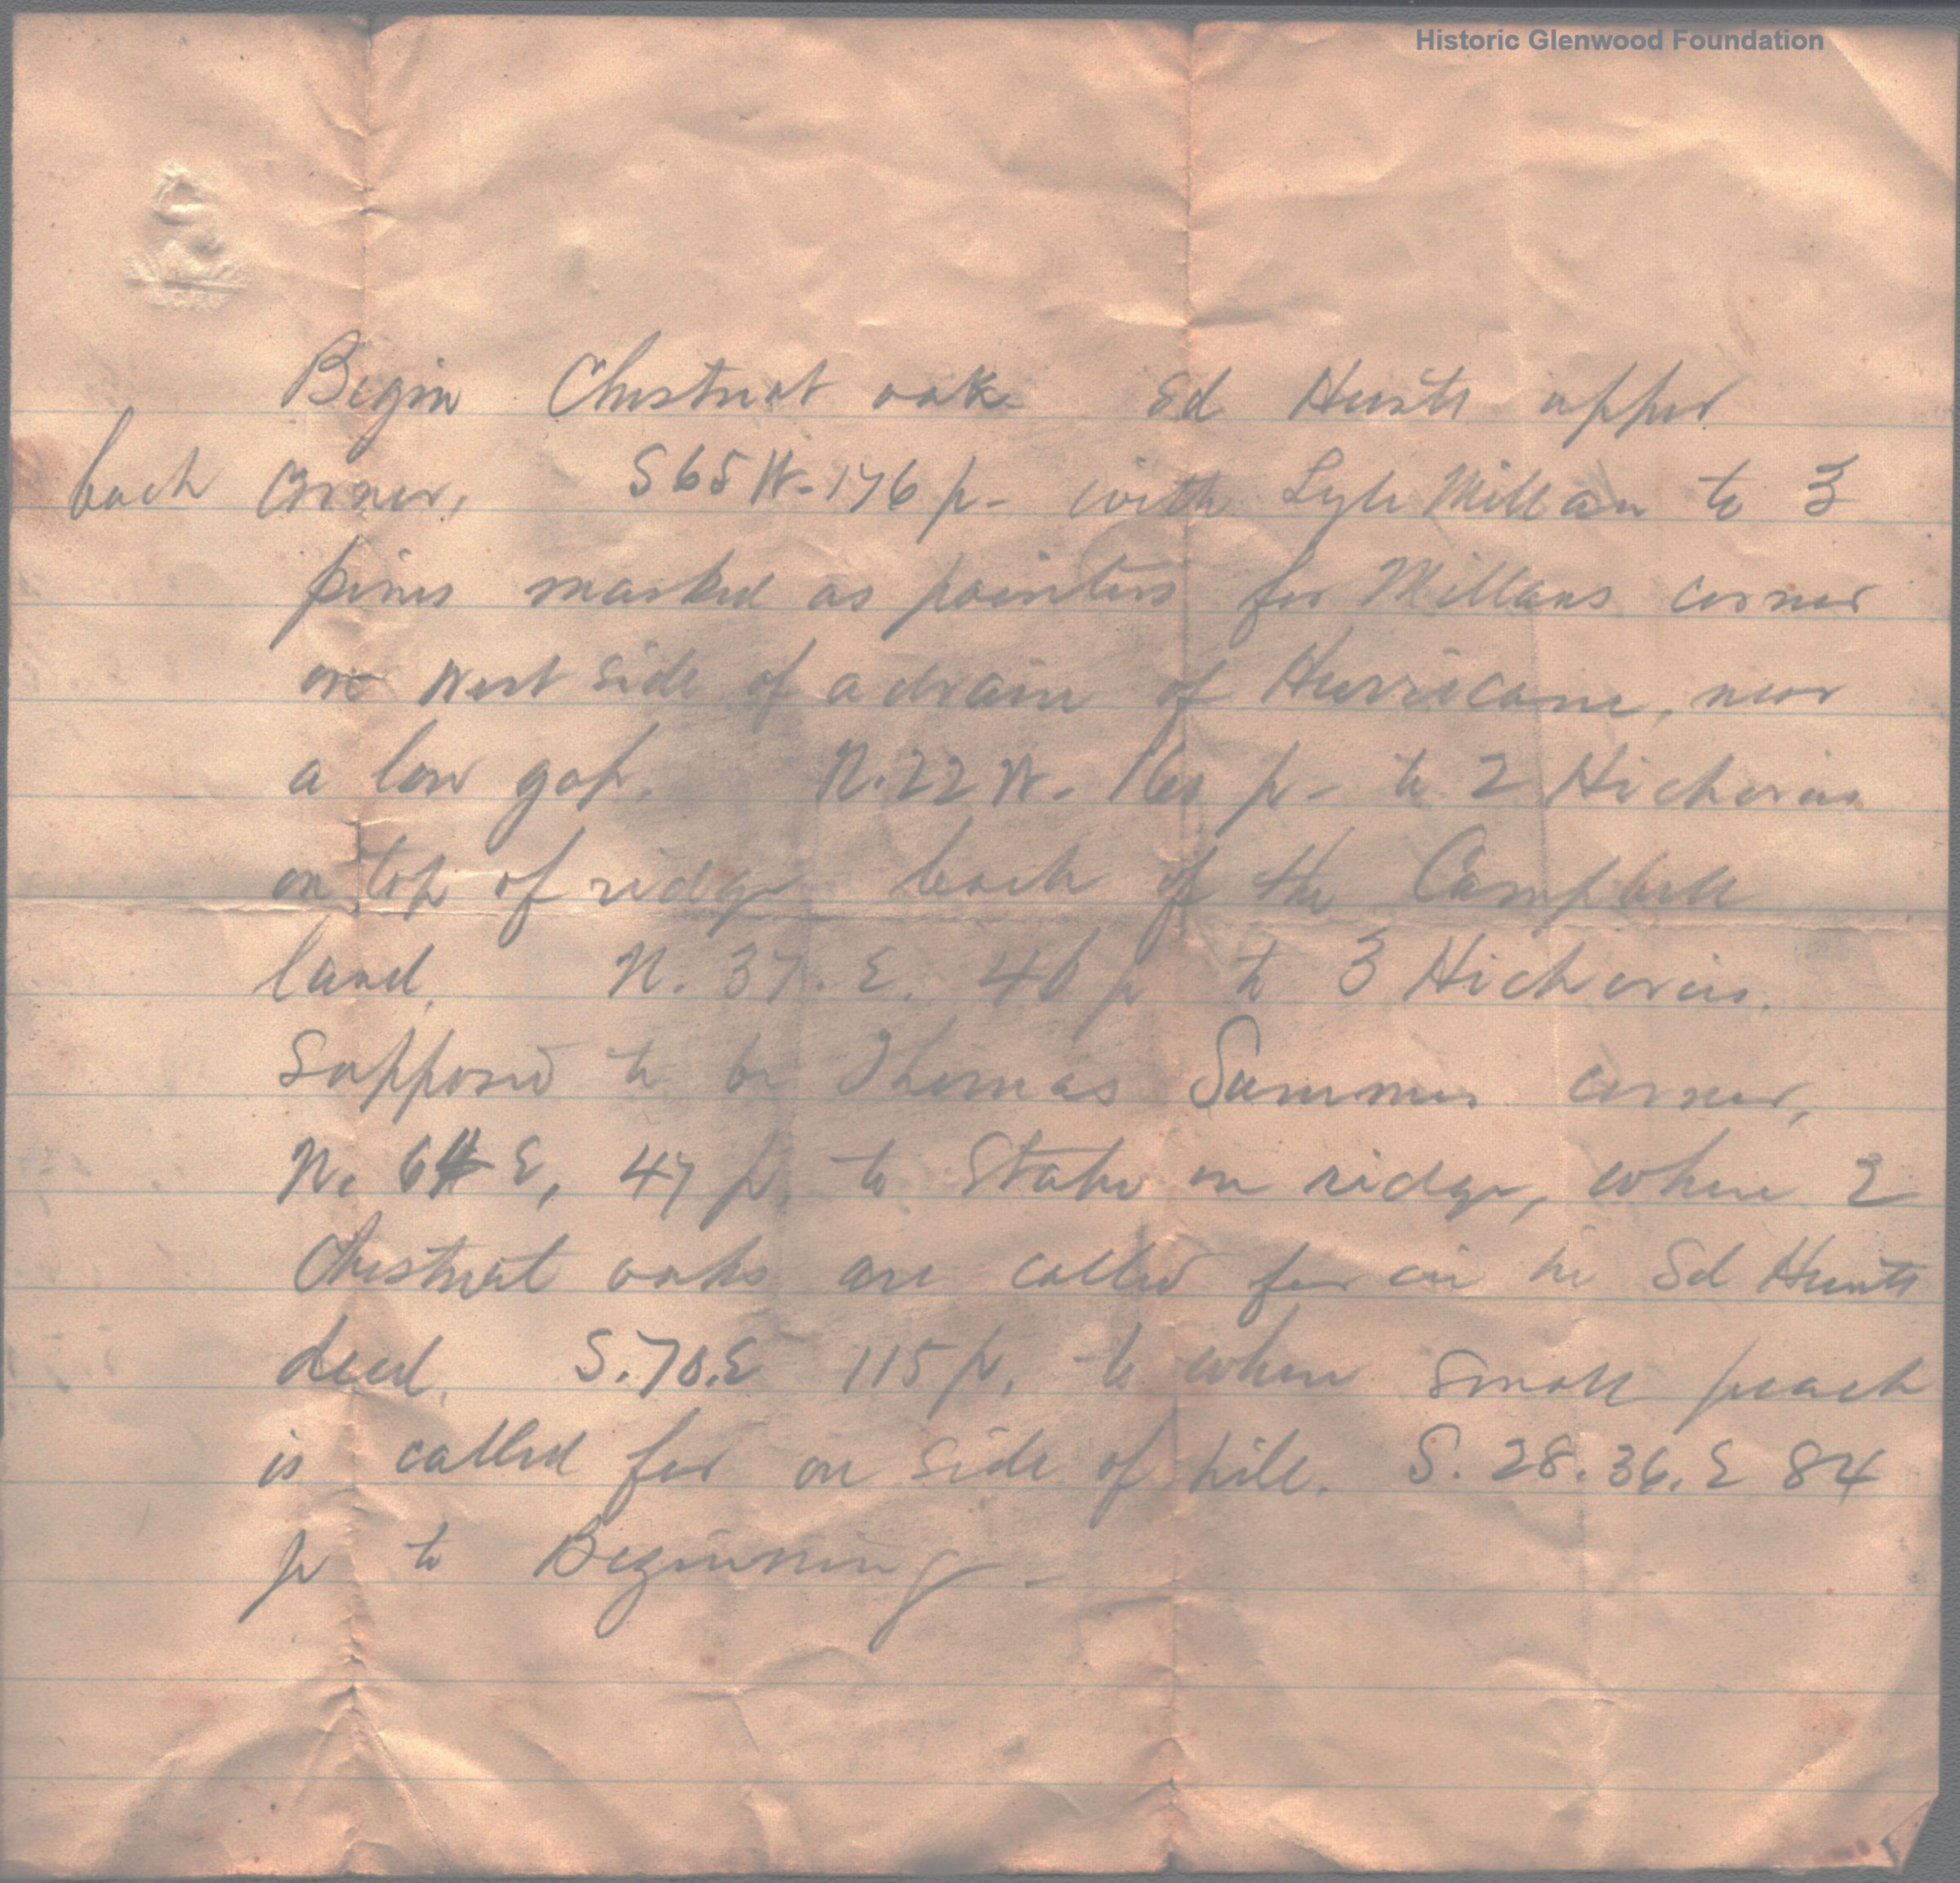 Historic Glenwood Foundation
Begin Chestnut oak Ed Hunts upper
back corner, S65W-176 p- with Lyle Millan to 3
pines marked as pointers for Millans corner
on West side of a drain of Hurricane, near
a low gap. N.22W- p- to 2 Hickories
on top of ridge back of the Campbell
land. N. 37. E. 46 p to 3 Hickories.
Supposed to be Thomas Summers corner,
N. E, 47 p. to Stake on ridge, where 2
Chestnut oaks are called for in Ed Hunts
deed. S.70.E 115 p. to where small peach
is called for on side of hill. S. 28.36. E 84
p to Beginning-